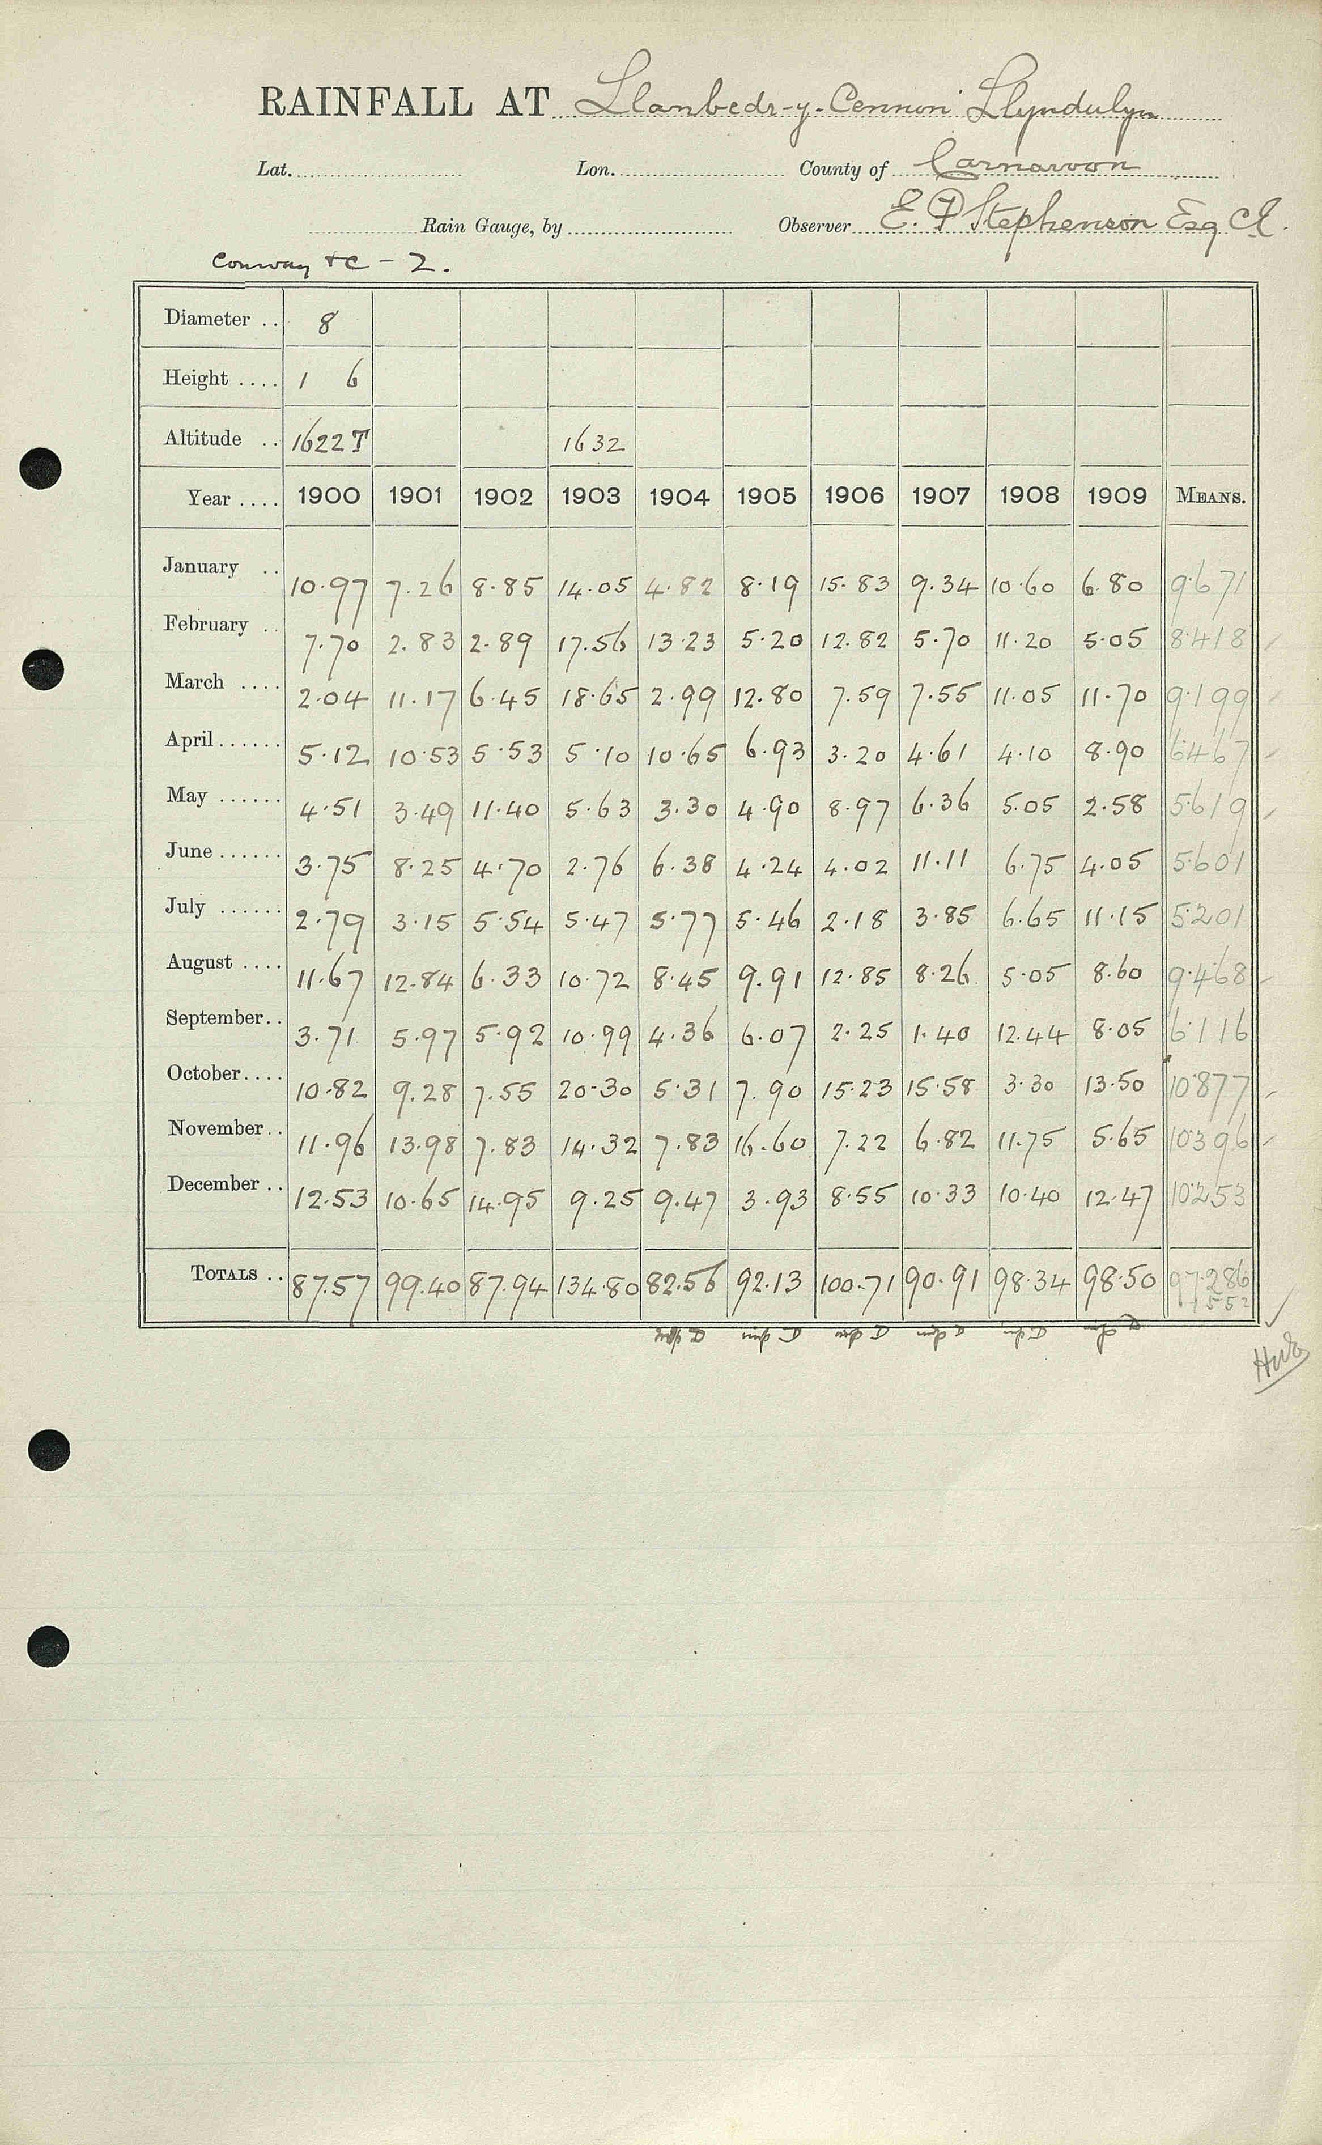 RAINFALL AT Llanbedr-y-Cennin Llyndulyn
Lat. Lon. County of Carnarvon
Rain Gauge, by Observer E. P Stephenson Esq CE.
Conway &c - 2.
Diameter .. 8
Height .... 1 6
Altitude .. 1622 T 1632
Year .... 1900 1901 1902 1903 1904 1905 1906 1907 1908 1909 MEANS.
January .. 10.97 7.26 8.85 14.05 4.82 8.19 15.83 9.34 10.60 6.80 9.671
February .. 7.70 2.83 2.89 17.56 13.23 5.20 12.82 5.70 11.20 5.05 8.418
March .... 2.04 11.17 6.45 18.65 2.99 12.80 7.59 7.55 11.05 11.70 9.199
April ...... 5.12 10.53 5.53 5.10 10.65 6.93 3.20 4.61 4.10 8.90 6.467
May ...... 4.51 3.49 11.40 5.63 3.30 4.90 8.97 6.36 5.05 2.58 5.619
June ...... 3.75 8.25 4.70 2.76 6.38 4.24 4.02 11.11 6.75 4.05 5.601
July ...... 2.79 3.15 5.54 5.47 5.77 5.46 2.18 3.85 6.65 11.15 5.201
August .... 11.67 12.84 6.33 10.72 8.45 9.91 12.85 8.26 5.05 8.60 9.468
September.. 3.71 5.97 5.92 10.99 4.36 6.07 2.25 1.40 12.44 8.05 6.116
October.... 10.82 9.28 7.55 20.30 5.31 7.90 15.23 15.58 3.30 13.50 10.877
November .. 11.96 13.98 7.83 14.32 7.83 16.60 7.22 6.82 11.75 5.65 10.396
December .. 12.53 10.65 14.95 9.25 9.47 3.93 8.55 10.33 10.40 12.47 10.253
TOTALS .. 87.57 99.40 87.94 134.80 82.56 92.13 100.71 90.91 98.34 98.50 97.286